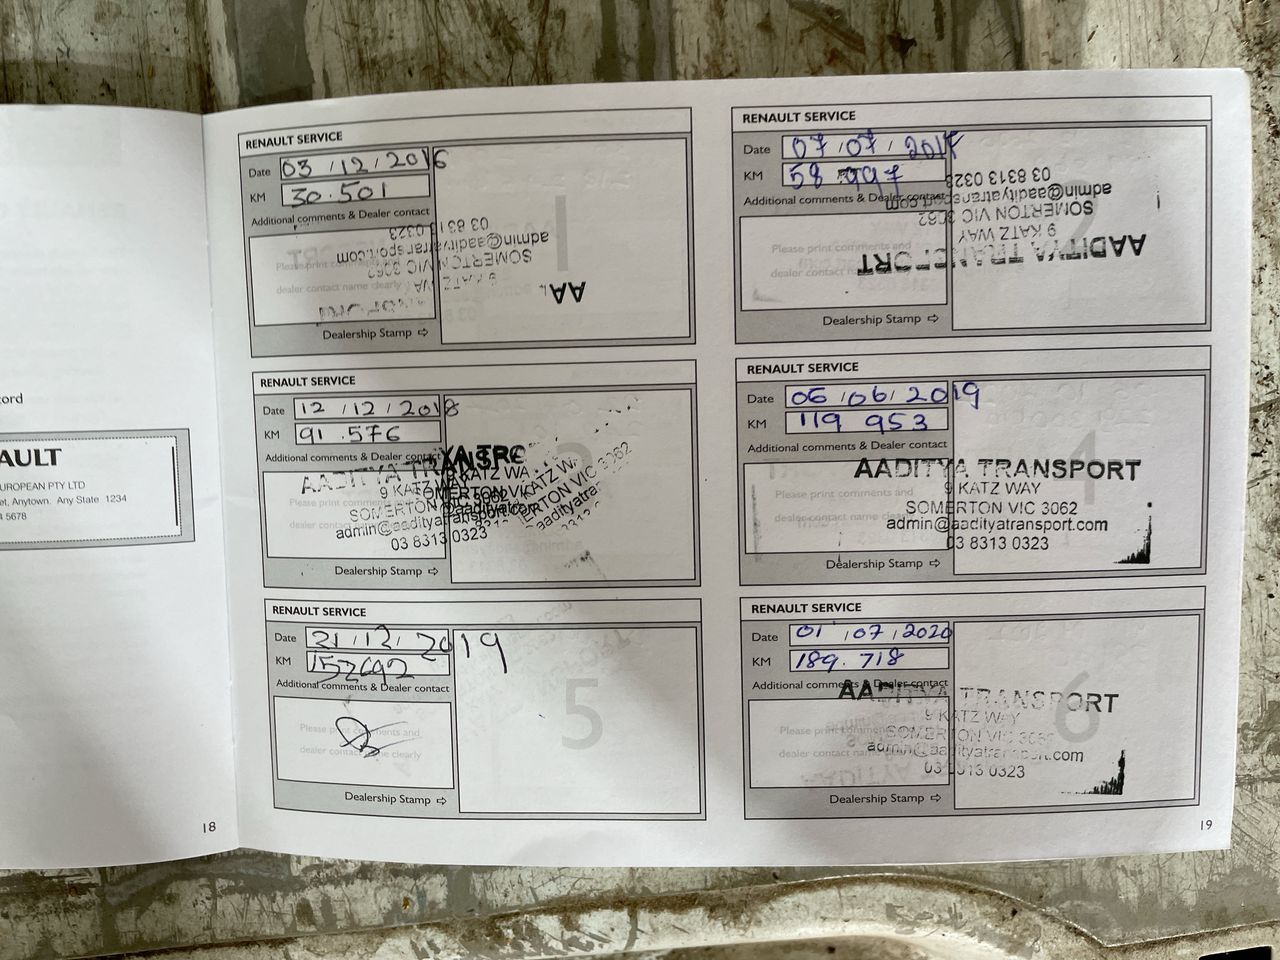 ord
AULT
UROPEAN PTY LTD
et, Anytown. Any State 1234
4 5678
18
RENAULT SERVICE
Date 03 / 12 / 2016
KM 30.501
Additional comments & Dealer contact
Please print comments and
dealer contact name clearly
Dealership Stamp ⇨
1
AA
9 KATZ WA
SOMERTON VIC 3062
admin@aadityatransport.com
03 8313 0323
RENAULT SERVICE
Date 12 / 12 / 2018
KM 91.576
Additional comments & Dealer contact
AADITYA TRANSP
9 KATZ WAY
SOMERTON VIC 3062
admin@aadityatransport.com
03 8313 0323
Dealership Stamp ⇨
RENAULT SERVICE
Date 21/12/2019
KM 152692
Additional comments & Dealer contact
Please print comments and
dealer contact name clearly
Dealership Stamp ⇨
5
RENAULT SERVICE
Date 07 / 07 / 2017
KM 58 997
Additional comments & Dealer contact
Please print comments and
dealer contact name clearly
Dealership Stamp ⇨
2
AADITYA TRANSPORT
9 KATZ WAY
SOMERTON VIC 3062
admin@aadityatransport.com
03 8313 0323
RENAULT SERVICE
Date 06 / 06 / 2019
KM 119 953
Additional comments & Dealer contact
Please print comments and
dealer contact name clearly
Dealership Stamp ⇨
4
AADITYA TRANSPORT
9 KATZ WAY
SOMERTON VIC 3062
admin@aadityatransport.com
03 8313 0323
RENAULT SERVICE
Date 01 / 07 / 2020
KM 189.718
Additional comments & Dealer contact
Please print comments and
dealer contact name clearly
Dealership Stamp ⇨
6
AADITYA TRANSPORT
9 KATZ WAY
SOMERTON VIC 3062
admin@aadityatransport.com
03 8313 0323
19